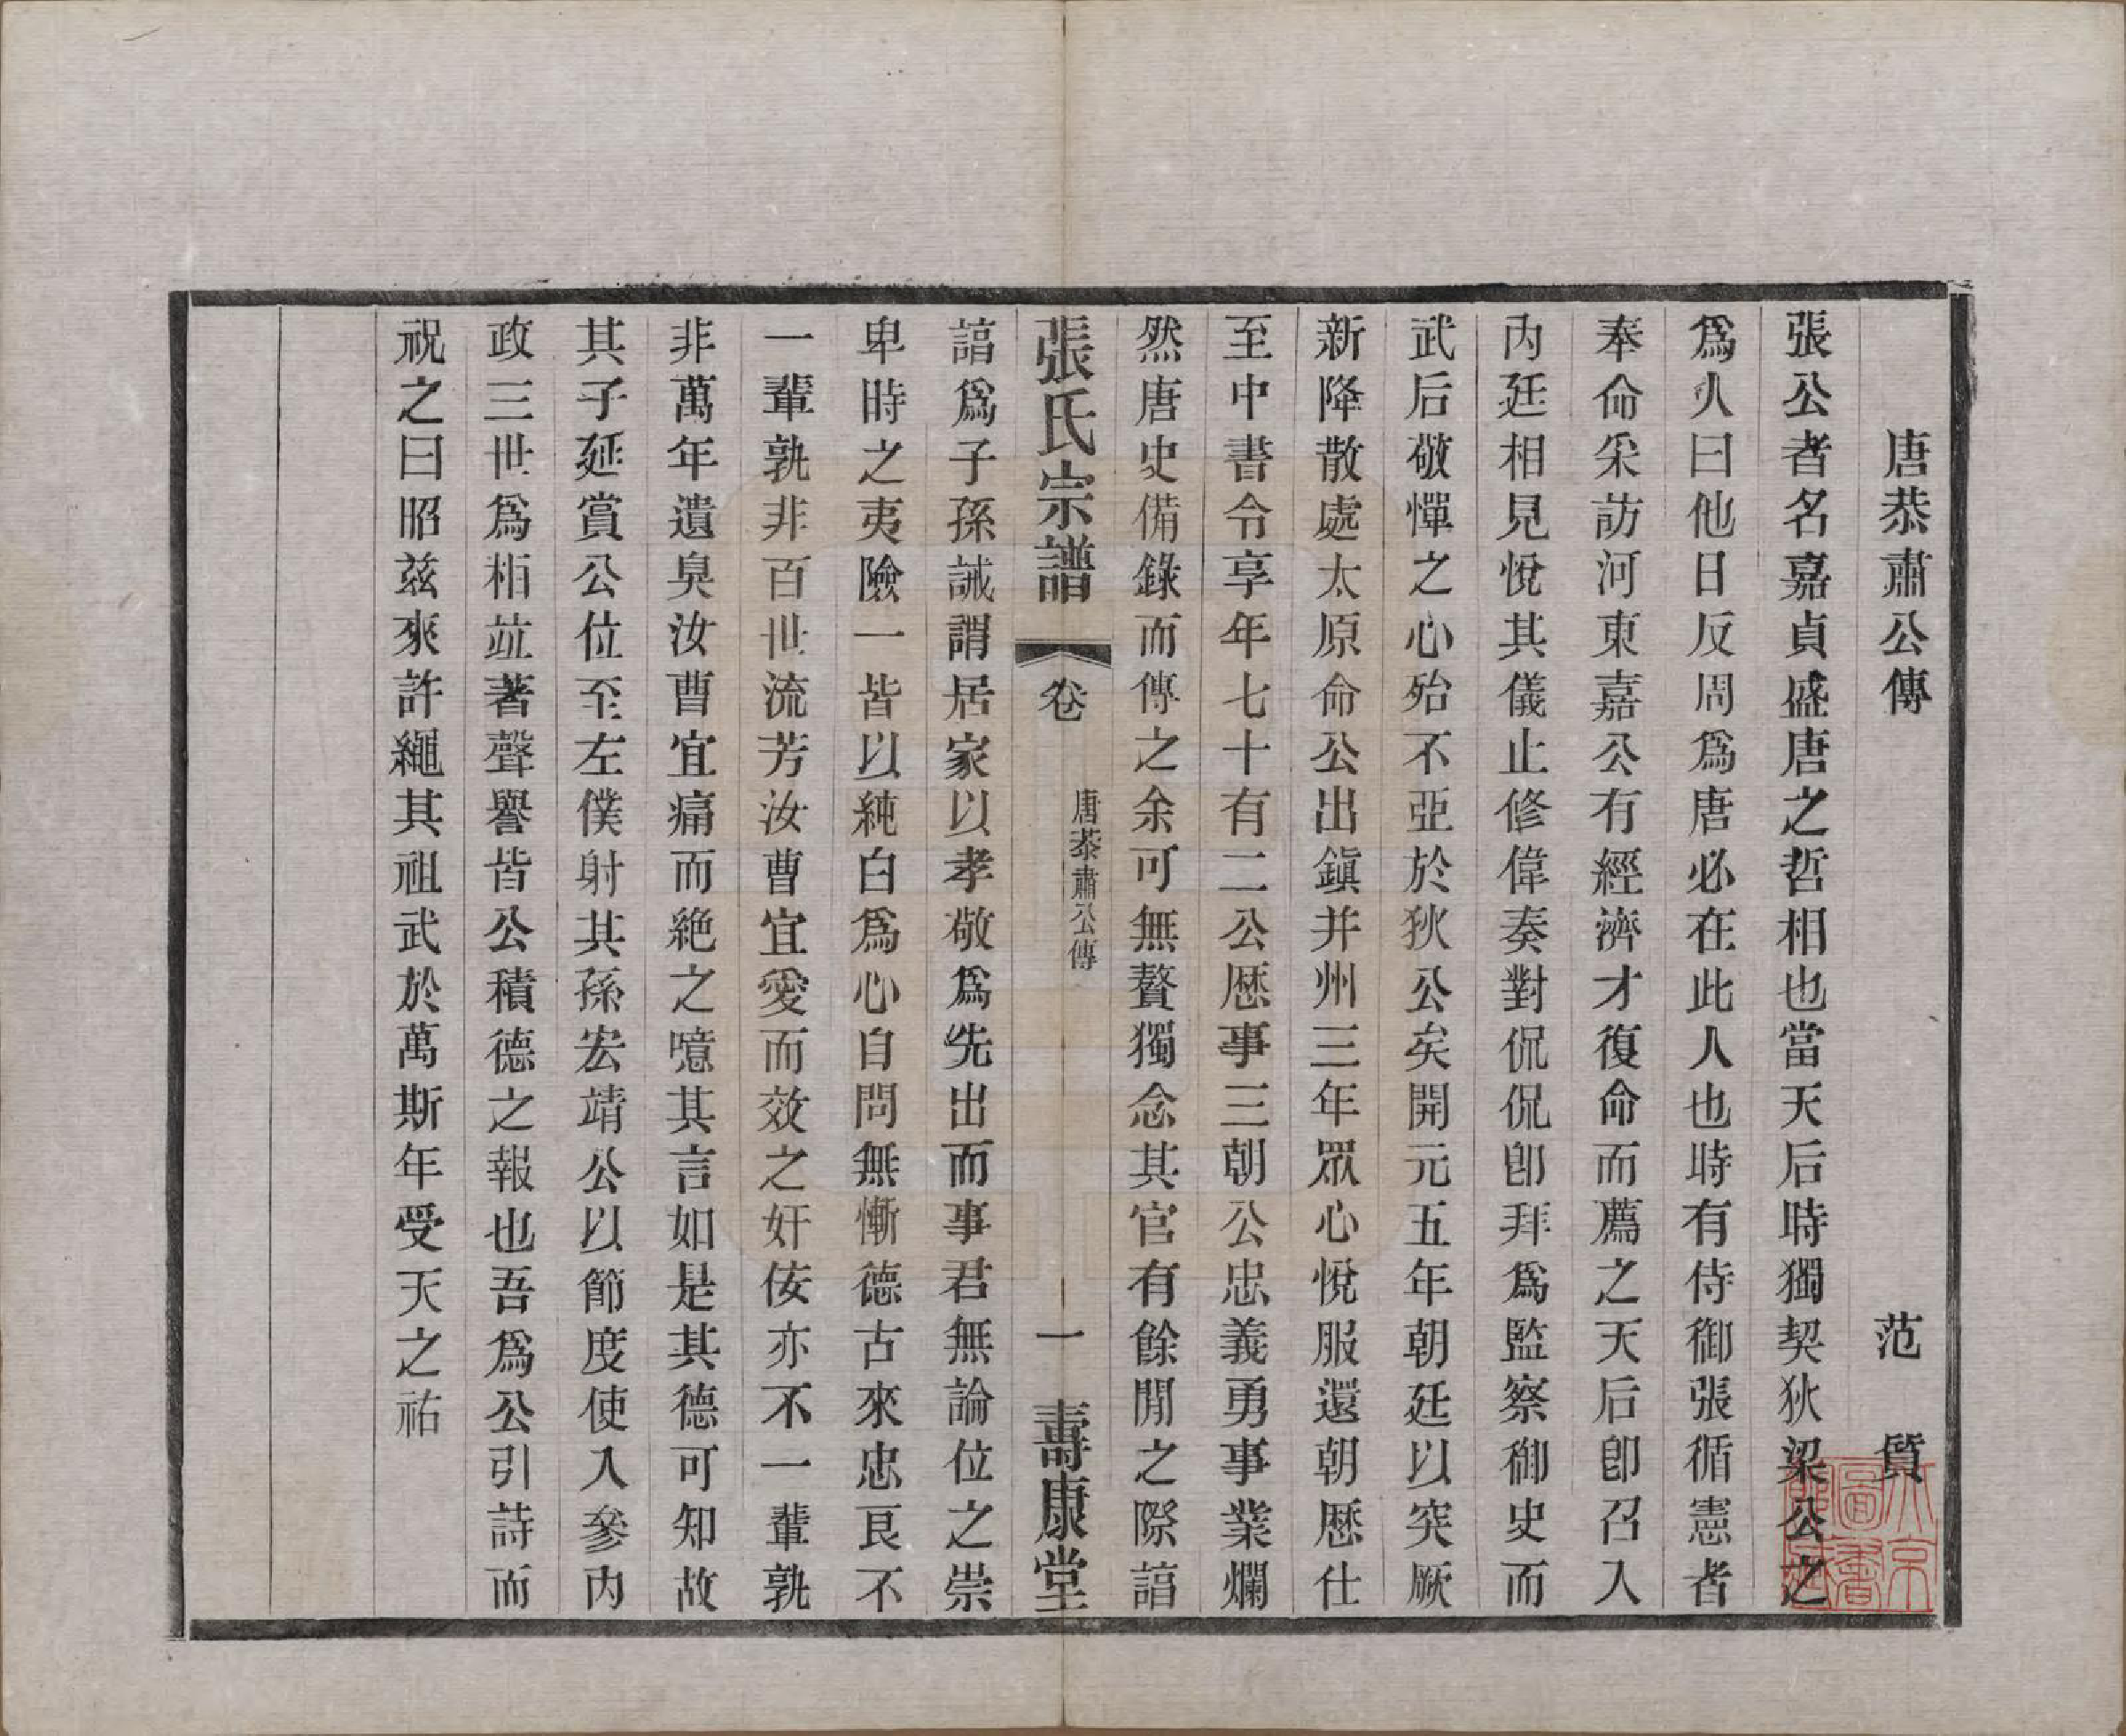 唐恭肅公傳 范質
張公者名嘉貞盛唐之哲相也當天后時獨契狄梁公之
爲人曰他日反周爲唐必在此人也時有侍御張循憲者
奉命采訪河東嘉公有經濟才復命而薦之天后卽召入
內廷相見悅其儀止修偉奏對侃侃卽拜爲監察御史而
武后敬憚之心殆不亞於狄公矣開元五年朝廷以突厥
新降散處太原命公出鎭并州三年眾心悅服還朝歷仕
至中書令享年七十有二公歷事三朝公忠義勇事業爛
然唐史備錄而傳之余可無贅獨念其官有餘閒之際諳
張氏宗譜 卷 唐恭肅公傳 一 壽康堂
諳爲子孫誡謂居家以孝敬爲先出而事君無論位之崇
卑時之夷險一皆以純白爲心自問無慚德古來忠良不
一輩孰非百世流芳汝曹宜愛而效之奸佞亦不一輩孰
非萬年遺臭汝曹宜痛而絶之噫其言如是其德可知故
其子延賞公位至左僕射其孫宏靖公以節度使入參內
政三世爲相竝著聲譽皆公積德之報也吾爲公引詩而
祝之曰昭茲來許繩其祖武於萬斯年受天之祜